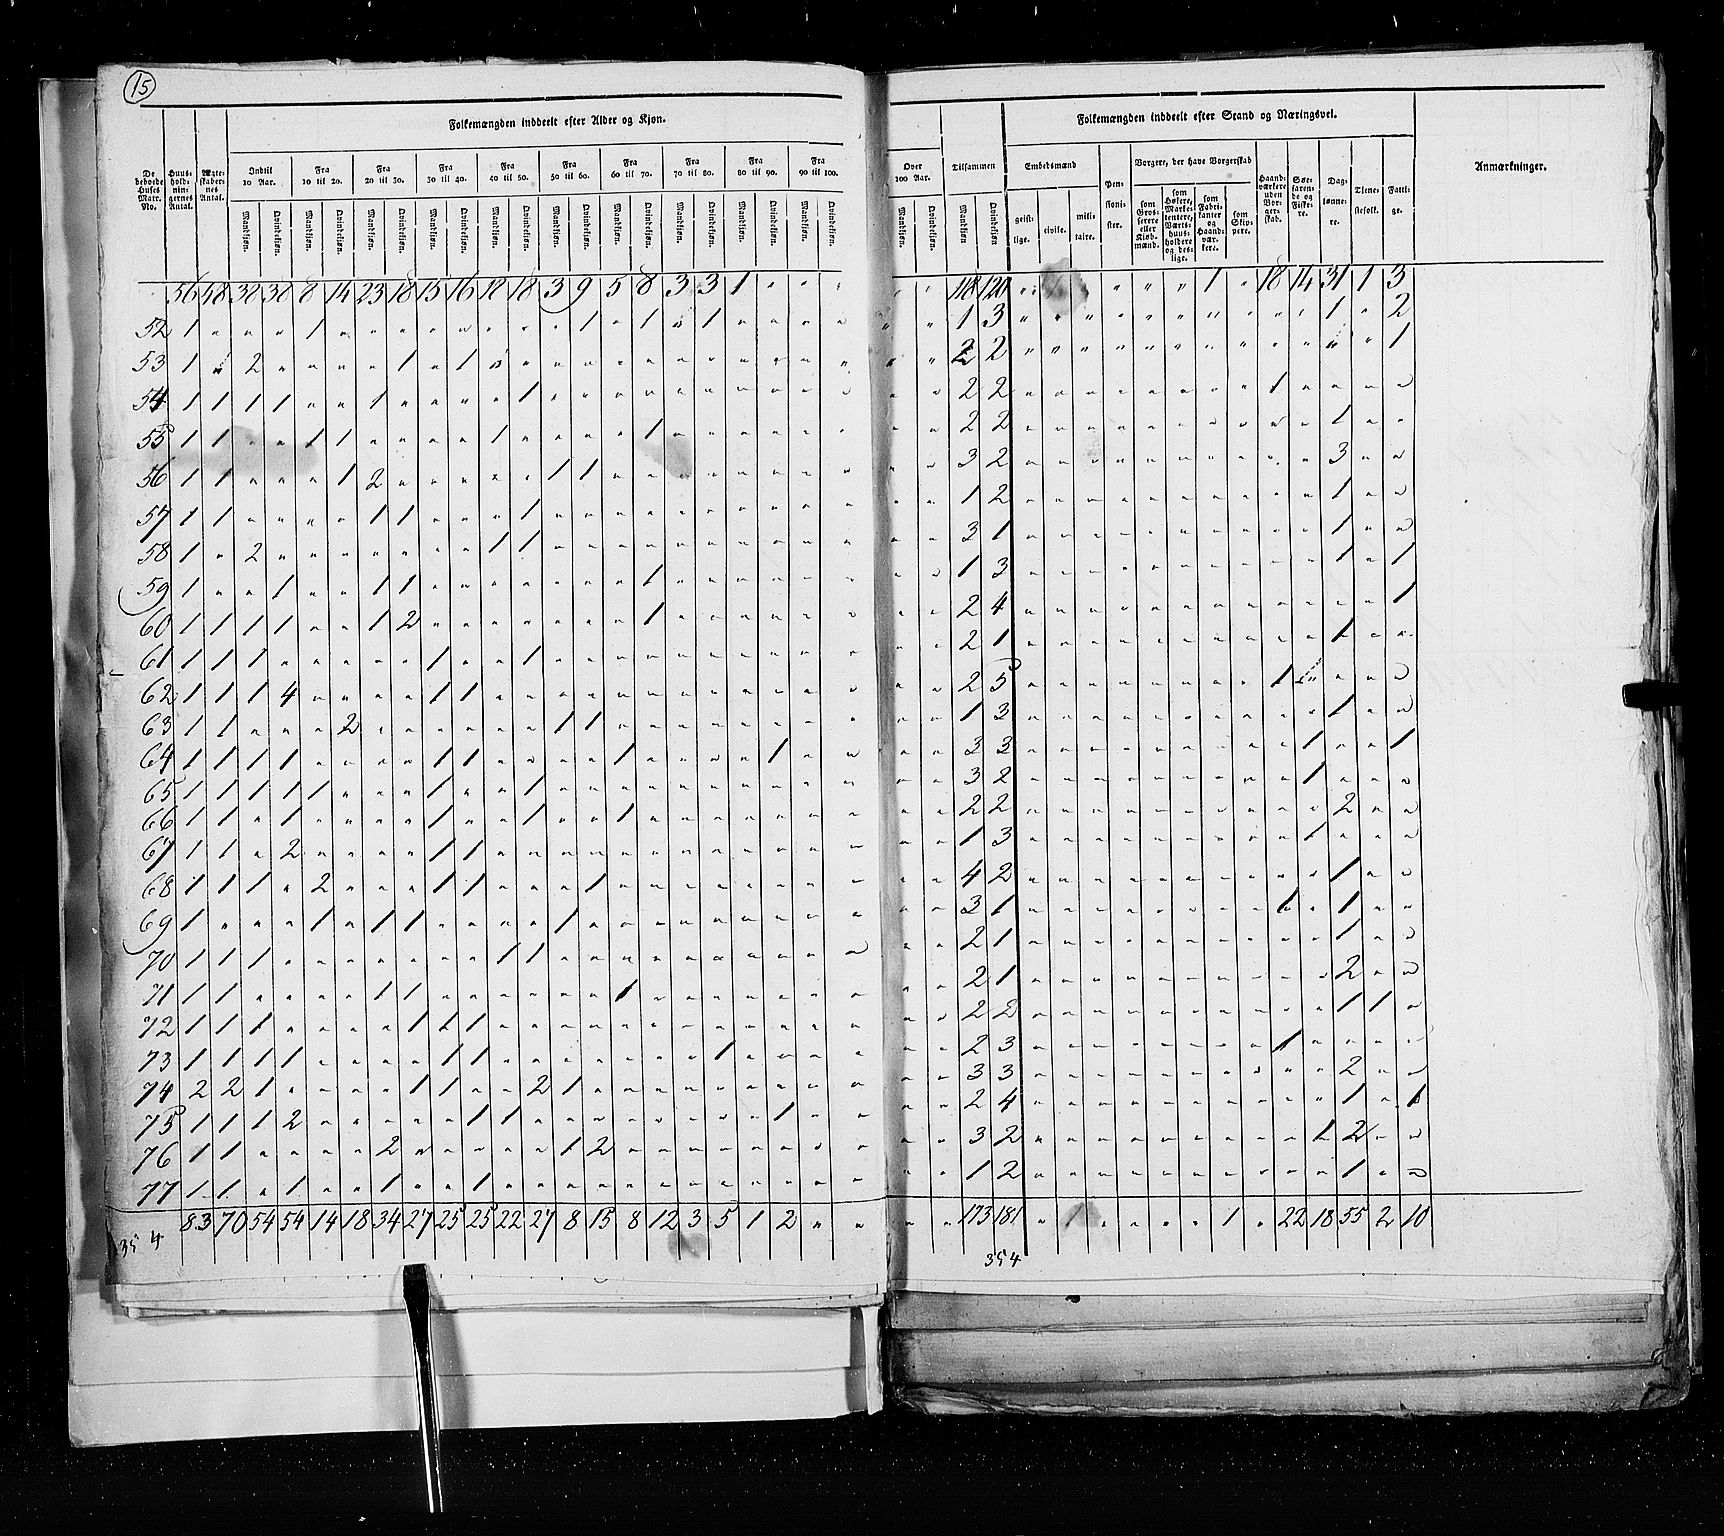 15
Folkemængden inddeelt efter Alder og Kjøn.
Folkemængden inddeelt efter Stand og Næringsvei.
De beboede Huses Matr. No. | Huusholdningernes Antal. | Ægteskabernes Antal. | Indtil 10 Aar. | Fra 10 til 20. | Fra 20 til 30. | Fra 30 til 40. | Fra 40 til 50. | Fra 50 til 60. | Fra 60 til 70. | Fra 70 til 80. | Fra 80 til 90. | Fra 90 til 100. | Over 100 Aar. | Tilsammen | Embedsmænd | Pensionister. | Borgere, der have Borgerskab | Haandværkere uden Borgerskab. | Søefarende og Fiskere. | Daglønnere. | Tjenestefolk. | Fattige. | Anmærkninger.
Mandkjøn. Qvindekjøn. | geistlige. | civile. | militaire. | som Grosserere eller Kjøbmænd. | som Høkere, Marketentere, Værtshuusholdere og deslige. | som Fabrikanter og Haandværkere. | som Skippere.
56 48 38 38 8 14 23 18 15 16 18 18 3 9 5 8 3 3 1 " " " " " 118 120 " " " " " " 1 " 18 14 31 1 3
52 1 1 1 1 1 1 3 1 2
53 1 2 1 1 2 2 1
54 1 1 1 1 1 1 2 2 1
55 1 1 1 1 1 1 2 2 1
56 1 1 1 2 1 1 3 2 3
57 1 1 1 1 1 1 2 1
58 1 2 1 1 3 1 1
59 1 1 1 1 1 1 3 1 1
60 1 1 1 1 1 2 1 2 4 1
61 1 1 1 1 1 2 1 1
62 1 1 1 4 1 1 2 5 1
63 1 1 2 1 1 1 3 1
64 1 1 1 1 1 1 1 1 3 3 1 1
65 1 1 1 1 1 1 1 3 2 1
66 1 1 1 1 1 1 2 2 2
67 1 1 2 1 1 1 3 1
68 1 1 1 2 1 1 1 4 2 1
69 1 1 1 1 1 3 1 1 1
70 1 1 1 1 1 2 1 1
71 1 1 1 1 1 2 1 2
72 1 1 1 1 1 1 2 2 1 1
73 1 1 1 1 1 1 1 2 3 1
74 2 2 1 1 1 2 1 3 3 2
75 1 1 1 2 1 1 1 2 4 1 1
76 1 1 2 1 2 3 2 1 2
77 1 1 1 1 1 1 2 1
83 70 54 54 14 18 34 27 25 25 22 27 8 15 8 12 3 5 1 2 " " " " 173 181 " 1 " " " " 1 " 22 18 55 2 10
354
354